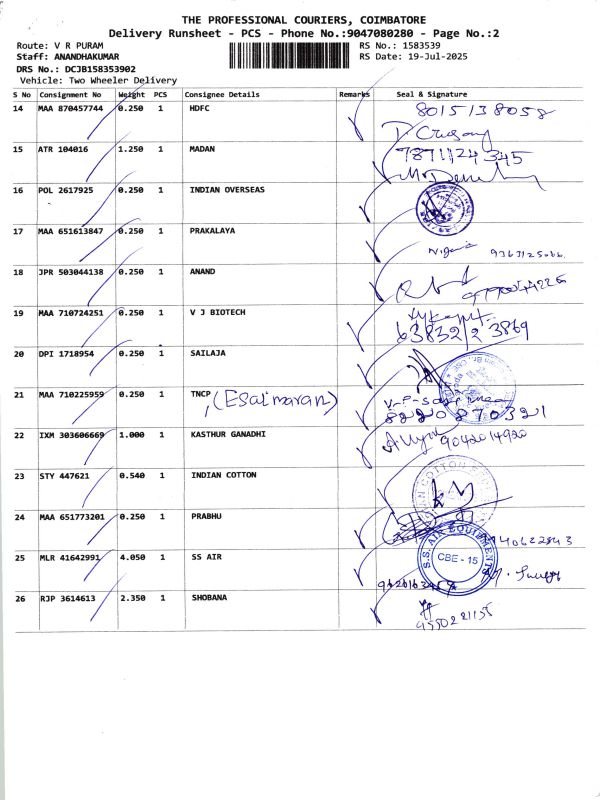 THE PROFESSIONAL COURIERS, COIMBATORE
Delivery Runsheet - PCS - Phone No.:9047080280 - Page No.:2
Route: V R PURAM
RS No.: 1583539
Staff: ANANDHAKUMAR
RS Date: 19-Jul-2025
DRS No.: DCJB158353902
Vehicle: Two Wheeler Delivery
S No Consignment No Weight PCS Consignee Details Remarks Seal & Signature
14 MAA 870457744 0.250 1 HDFC 8015138058
15 ATR 104016 1.250 1 MADAN 7871124345
16 POL 2617925 0.250 1 INDIAN OVERSEAS
17 MAA 651613847 0.250 1 PRAKALAYA
18 JPR 503044138 0.250 1 ANAND
19 MAA 710724251 0.250 1 V J BIOTECH
63832/2 3869
20 DPI 1718954 0.250 1 SAILAJA
21 MAA 710225959 0.250 1 TNCP (Esaimaran)
8220870321
22 IXM 303606669 1.000 1 KASTHUR GANADHI 9042014920
23 STY 447621 0.540 1 INDIAN COTTON
24 MAA 651773201 0.250 1 PRABHU
25 MLR 41642991 4.050 1 SS AIR
S.S. AIR EQUIPMENTS
CBE - 15
26 RJP 3614613 2.350 1 SHOBANA